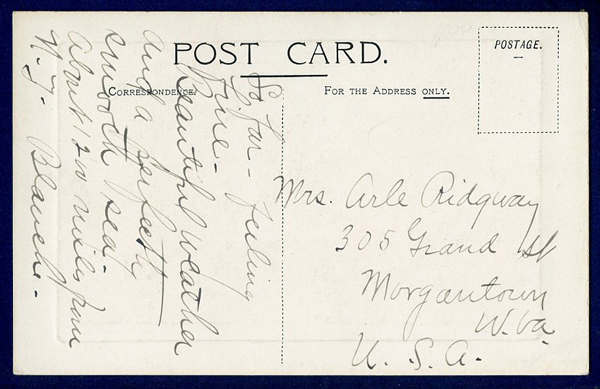 POST CARD.
POSTAGE.
CORRESPONDENCE.
FOR THE ADDRESS ONLY.
So far - feeling
fine -
Beautiful weather
and a perfectly
smooth sea -
about 1200 miles from
N. Y. Blanche.
Mrs. Arle Ridgway
305 Grand St
Morgantown
W. Va.
U. S. A.